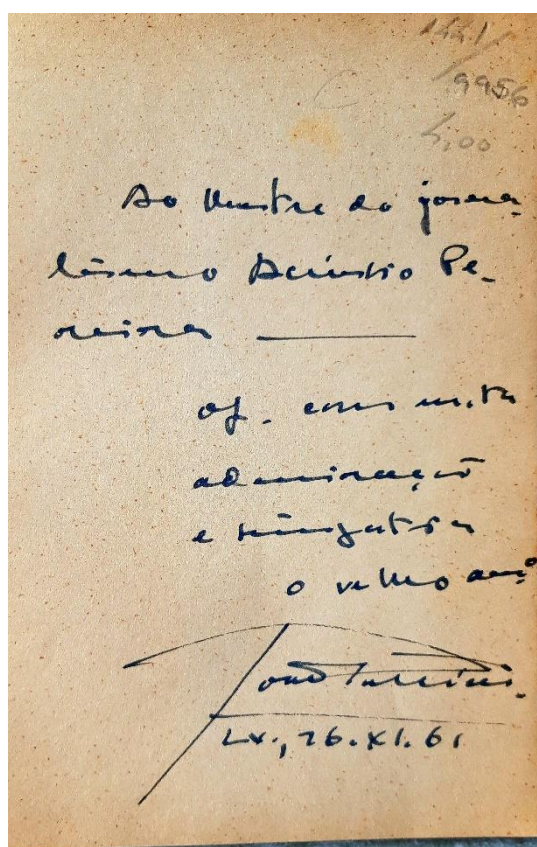 1221/
9956
5,00
Ao Mestre do jorna-
lismo Acúrsio Pe-
reira
of. com muita
admiração
e simpatia
o velho amº
Lx., 26.XI.61